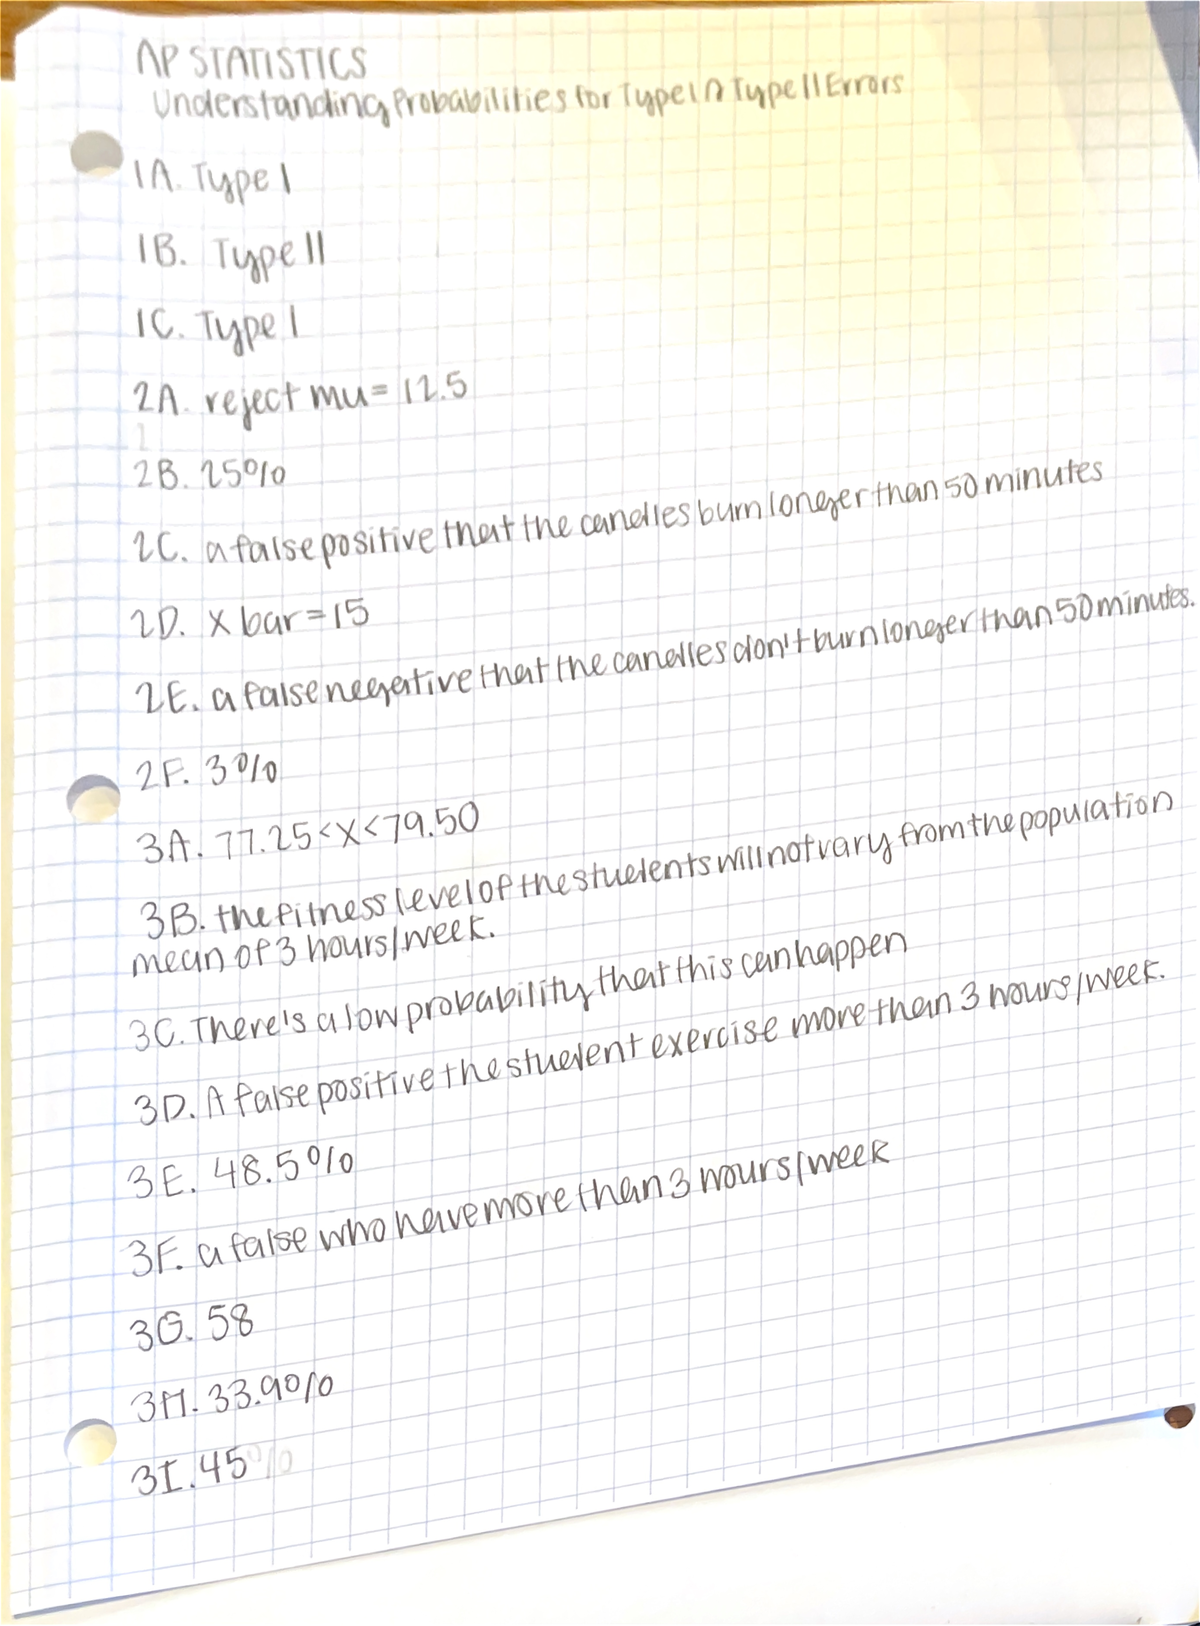 AP STATISTICS
Understanding Probabilities for Type I n Type II Errors
1A. Type I
1B. Type II
1C. Type I
2A. reject mu = 12.5
2B. 25%
2C. a false positive that the candles burn longer than 50 minutes
2D. x bar = 15
2E. a false negative that the candles don't burn longer than 50 minutes.
2F. 3%
3A. 77.25 < x < 79.50
3B. the fitness level of the students will not vary from the population
mean of 3 hours/week.
3C. There's a low probability that this can happen
3D. A false positive the student exercise more than 3 hours/week.
3E. 48.5%
3F. a false who have more than 3 hours/week
3G. 58
3H. 33.9%
3I. 45%